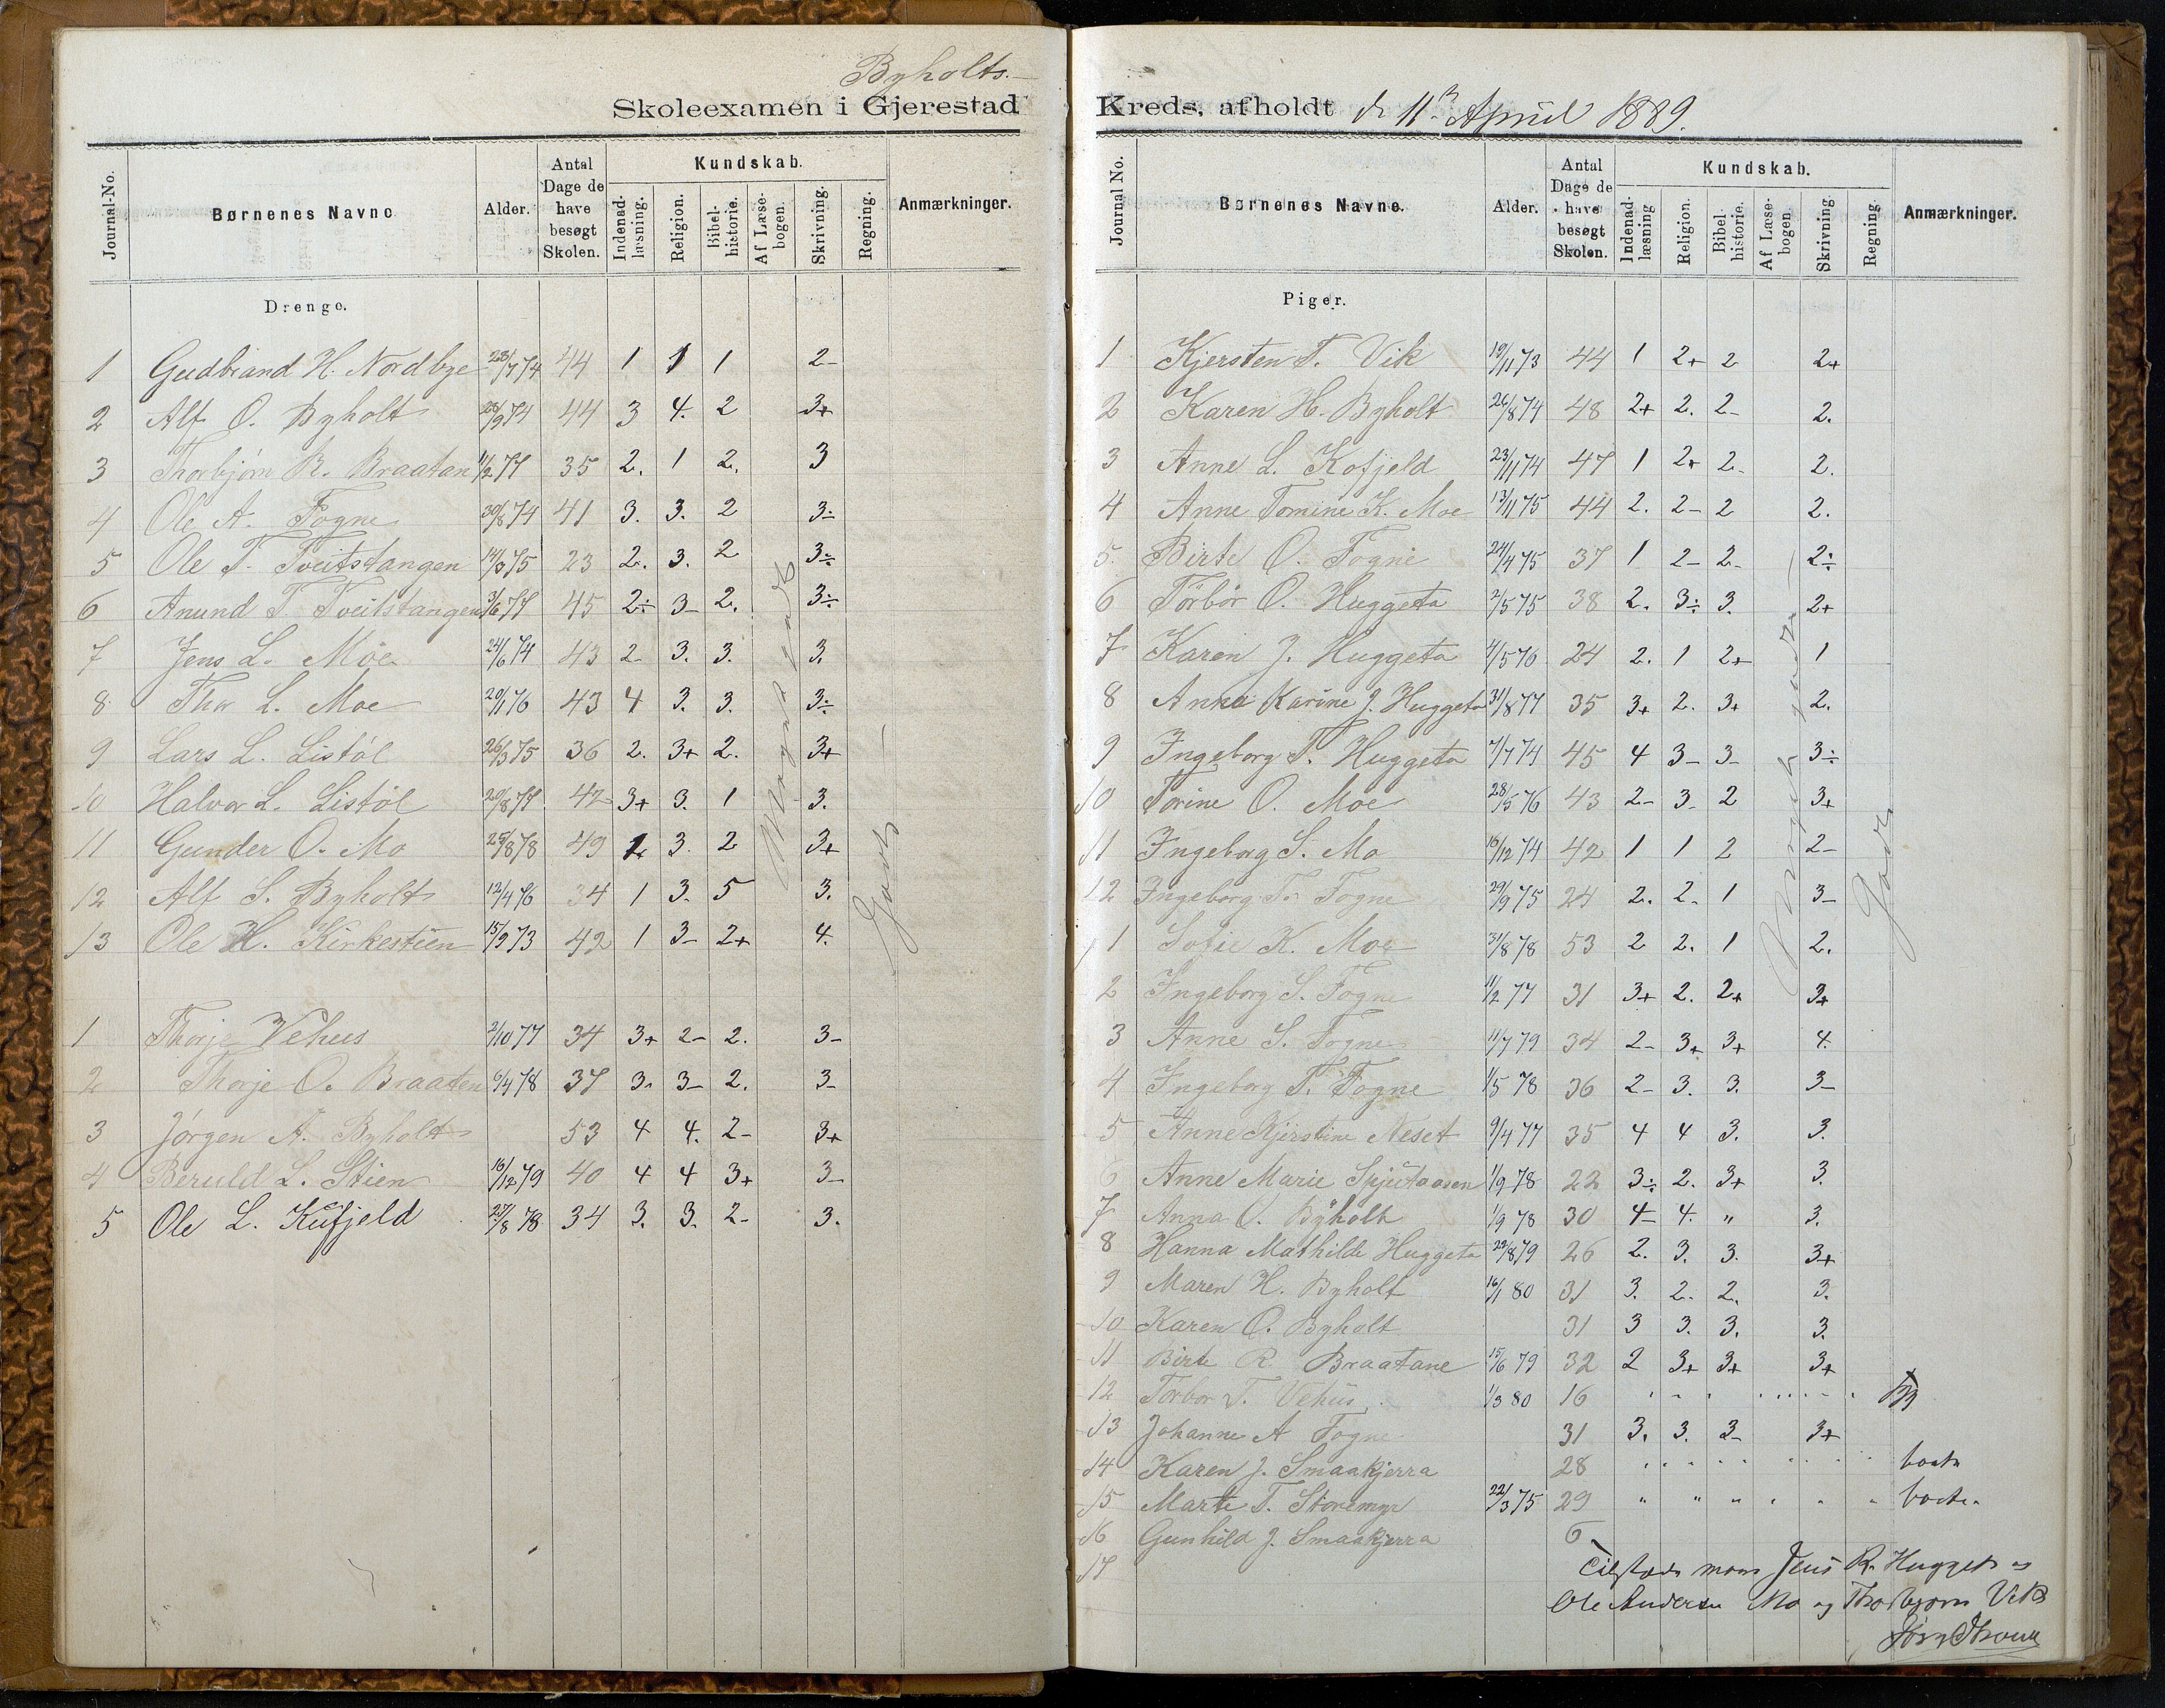 Byholts.-
Skoleexamen i Gjerestad
Journal-No. Børnenes Navne Alder. Antal Dage de have besøgt Skolen. Kundskab. Indenad-læsning. Religion. Bibel-historie. Af Læse-bogen. Skrivning. Regning. Anmærkninger.
Drenge.
1 Gudbrand H. Nordbye 23/7 74 44 1 1 1 2-
2 Alf O. Byholt 28/9 74 44 3 4. 2 3+
3 Thorbjørn R. Braatan 11/2 77 35 2. 1 2. 3
4 Ole A. Fogne 30/8 74 41 3. 3. 2 3-
5 Ole T. Tveitstangen 14/3 75 23 2. 3. 2 3÷
6 Anund T. Tveitstangen 3/6 77 45 2÷ 3- 2. 3÷
7 Jens L. Moe 24/6 74 43 2- 3. 3. 3.
8 Thor L. Moe 20/1 76 43 4 3. 3. 3÷
9 Lars L. Listöl 26/3 75 36 2. 3+ 2. 3+
10 Halvor L. Listöl 20/8 77 42 3+ 3. 1 3.
11 Gunder O. Mo 25/8 78 49 3. 2 3+
12 Alf S. Byholt 12/4 76 34 1 3. 5 3.
13 Ole H. Kirkestien 15/9 73 42 1 3- 2+ 4.
Meget godt
Godt
1 Thorje Vehus 2/10 77 34 3+ 2- 2. 3-
2 Thorje O. Braaten 6/4 78 37 3. 3- 2. 3-
3 Jörgen A. Byholt 53 4 4. 2- 3+
4 Beruld L. Stien 16/12 79 40 4 4 3+ 3-
5 Ole L. Kufjeld 27/8 78 34 3. 3. 2- 3.
Kreds, afholdt d. 11te April 1889.
Journal No. Børnenes Navne. Alder. Antal Dage de have besøgt Skolen. Kundskab. Indenad-læsning Religion. Bibel-historie. Af Læse-bogen. Skrivning. Regning. Anmærkninger.
Piger.
1 Kjersten T. Vik 19/11 73 44 1 2+ 2 2+
2 Karen H. Byholt 26/8 74 48 2+ 2. 2- 2.
3 Anne L. Kofjeld 23/11 74 47 1 2+ 2- 2.
4 Anne Tomine K. Moe 13/11 75 44 2. 2- 2 2.
5. Birte O. Fogne 24/4 75 37 1 2- 2- 2÷
6 Törbör O. Huggeta 2/5 75 38 2. 3÷ 3. 2+
7 Karen J. Huggeta 4/5 76 24 2. 1 2+ 1
8 Anna Karine J. Huggeta 31/8 77 35 3+ 2. 3+ 2.
9 Ingeborg T. Huggeta 7/7 74 45 4 3- 3- 3÷
10 Torine O. Moe 28/5 76 43 2- 3- 2 3+
11 Ingeborg S. Mo 16/12 74 42 1 1 2 2-
12 Ingeborg T. Fogne 29/9 75 24 2. 2- 1 3-
Meget godt
Godt
1 Sofie K. Moe 31/8 78 53 2 2. 1 2.
2 Ingeborg S. Fogne 11/2 77 31 3+ 2. 2+ 3+
3 Anne S. Fogne 11/7 79 34 2- 3+ 3+ 4.
4 Ingeborg T. Fogne 1/5 78 36 2- 3. 3. 3-
5 Anne Kjirstine Neset 9/4 77 35 4 4 3. 3.
6 Anne Marie Spjutaasen 1/9 78 22 3÷ 2. 3+ 3.
7 Anna O. Byholt 1/9 78 30 4- 4. " 3.
8 Hanna Mathilde Huggeta 22/8 79 26 2. 3. 3. 3+
9 Maren H. Byholt 16/1 80 31 3. 2- 2. 3.
10 Karen O. Byholt 31 3 3. 3. 3.
11 Birte R Braatane 15/6 79 32 2 3+ 3+ 3+
12 Torbor T. Vehus 1/3 80 16
13 Johanne A Fogne 31 3. 3. 3- 3+
14 Karen J. Smaakjerra 28 borte
15 Marte T. Storemyr 22/3 75 29 " " " " " " borte.
16 Gunhild J. Smaakjerra 6
17
Tilstæde mans Jens R. Hugget og
Ole Andersen Mo og Thorbjørn Vik